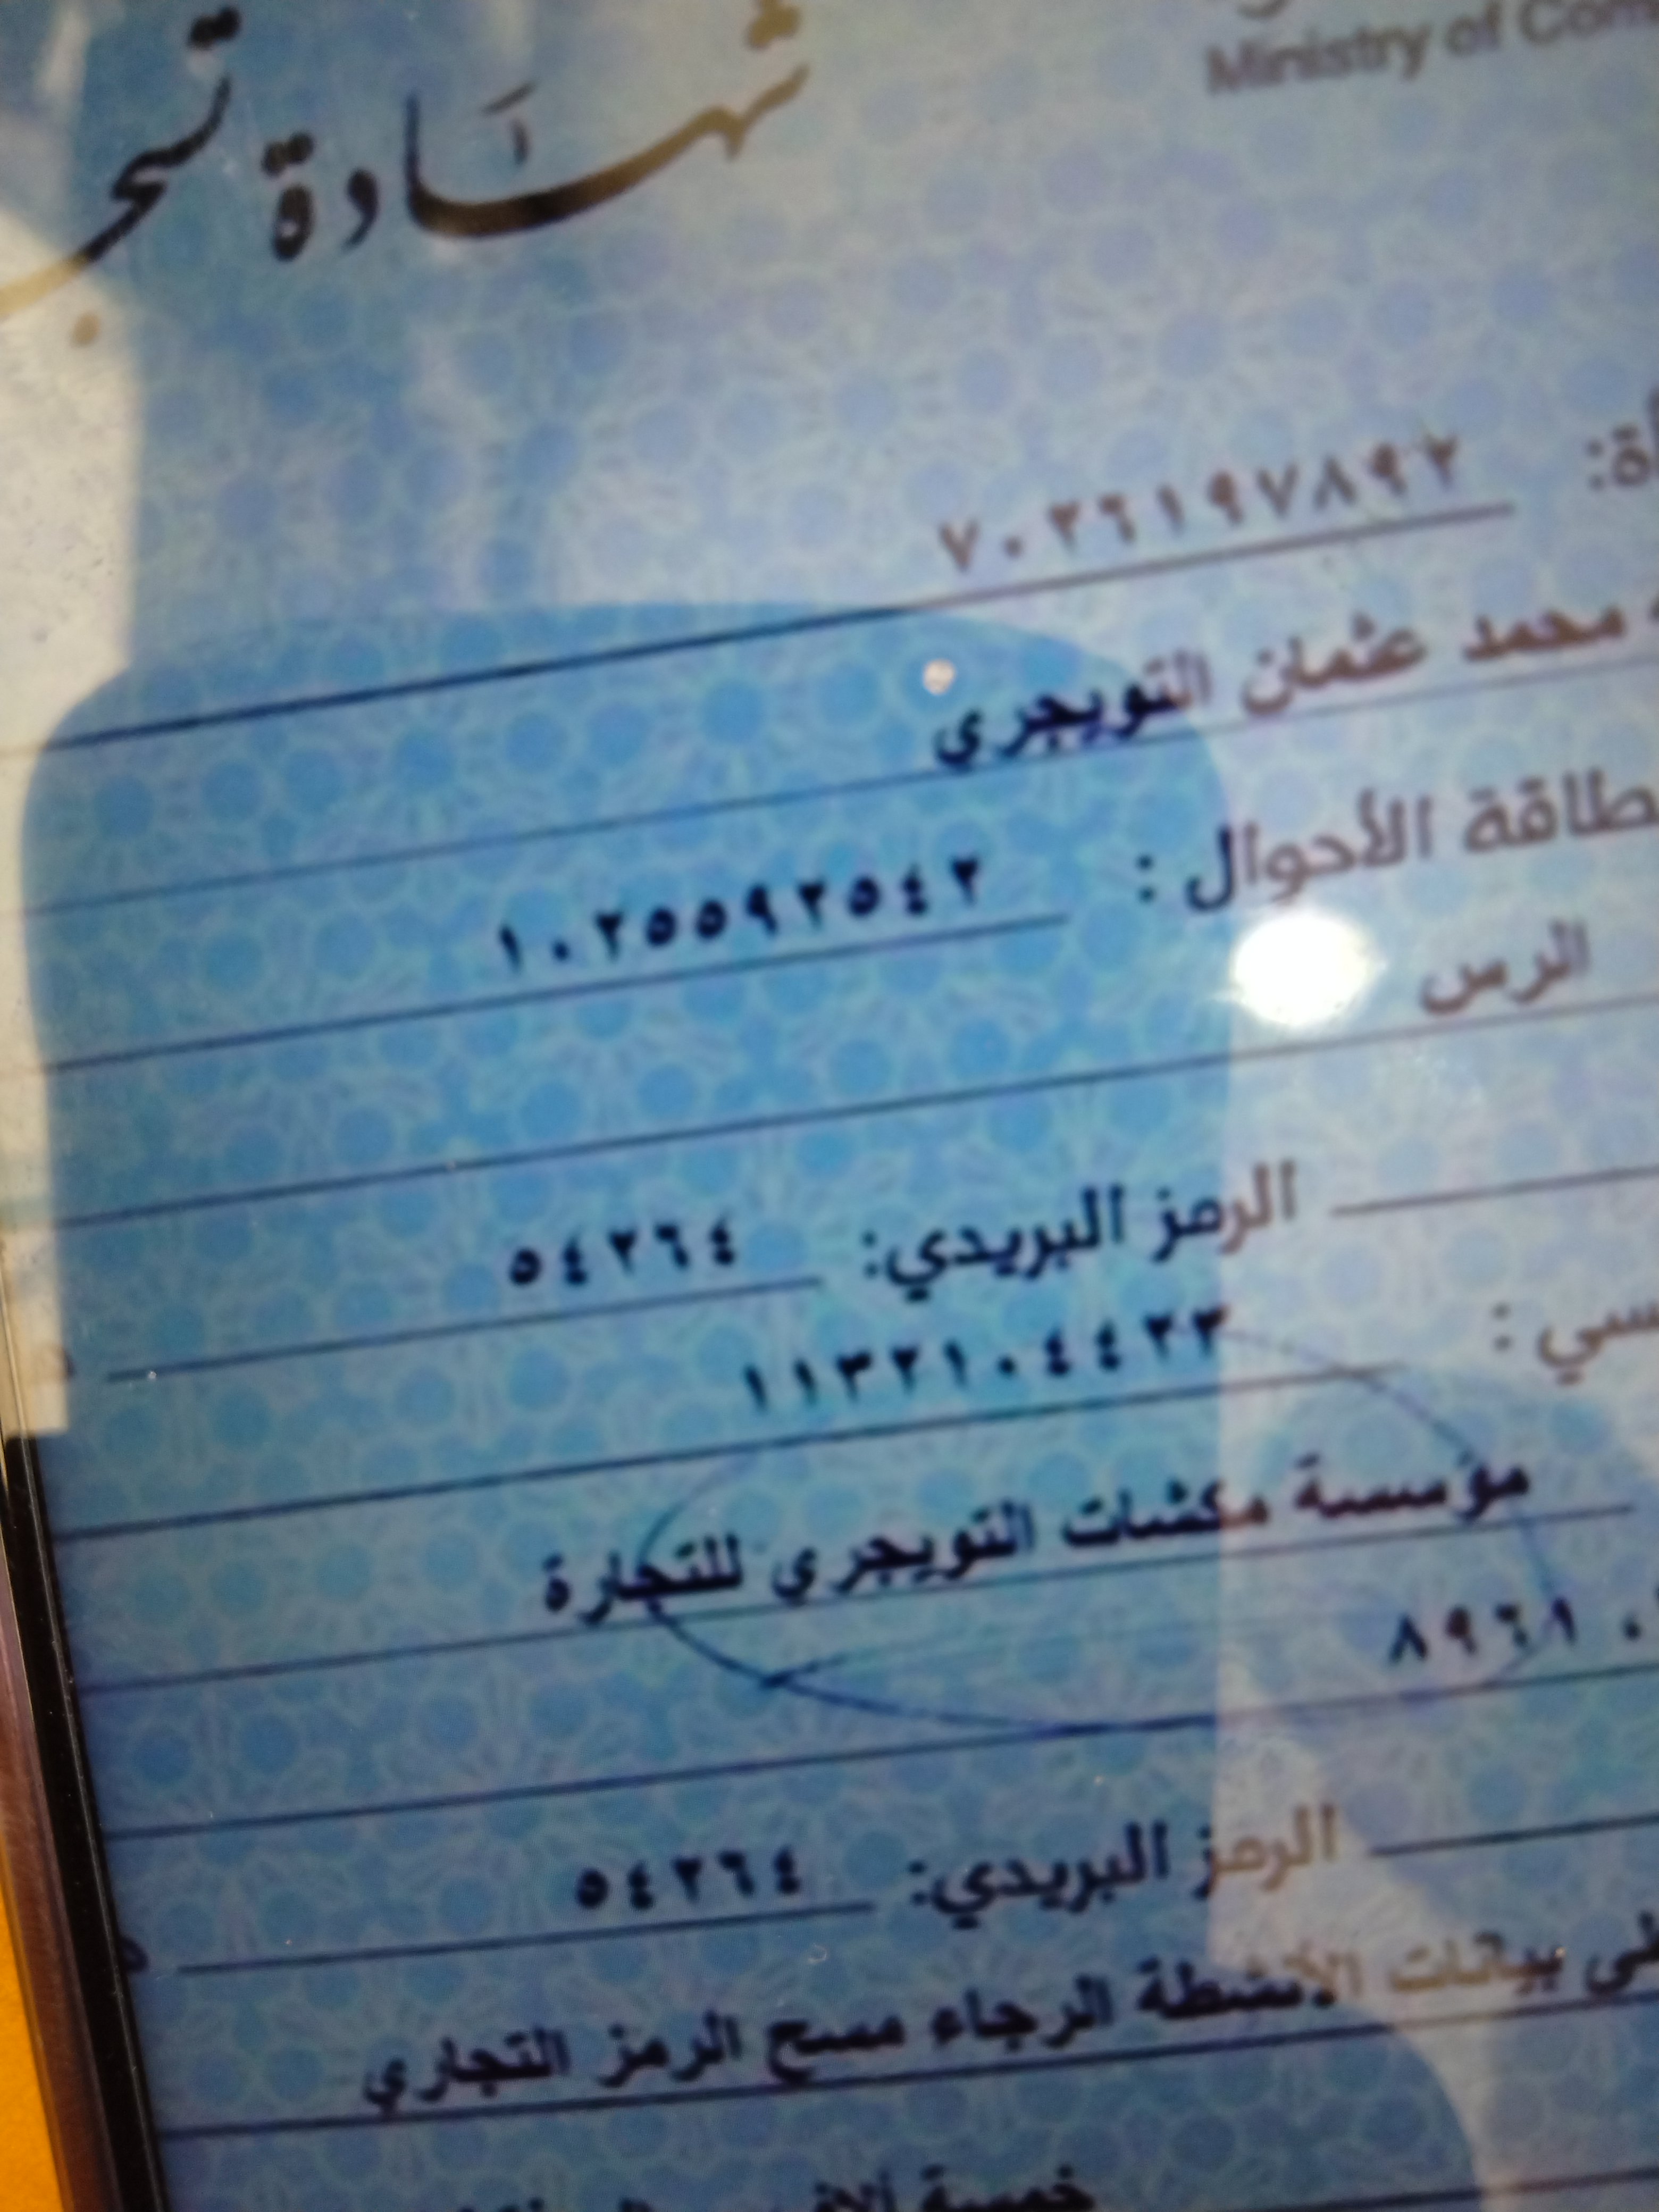 Ministry of Com
شهادة تسجـ
أة: ٧٠٣٦١٩٧٨٩٢
محمد عثمان التويجري
طاقة الأحوال : ١٠٢٥٥٩٢٥٤٢
الرس
الرمز البريدي: ٥٤٢٦٤
سي : ١١٣٢١٠٤٤٢٣
مؤسسة مكشات التويجري للتجارة
٨٩٦١٠
الرمز البريدي: ٥٤٢٦٤
بيانات الأنشطة الرجاء مسح الرمز التجاري
خمسة